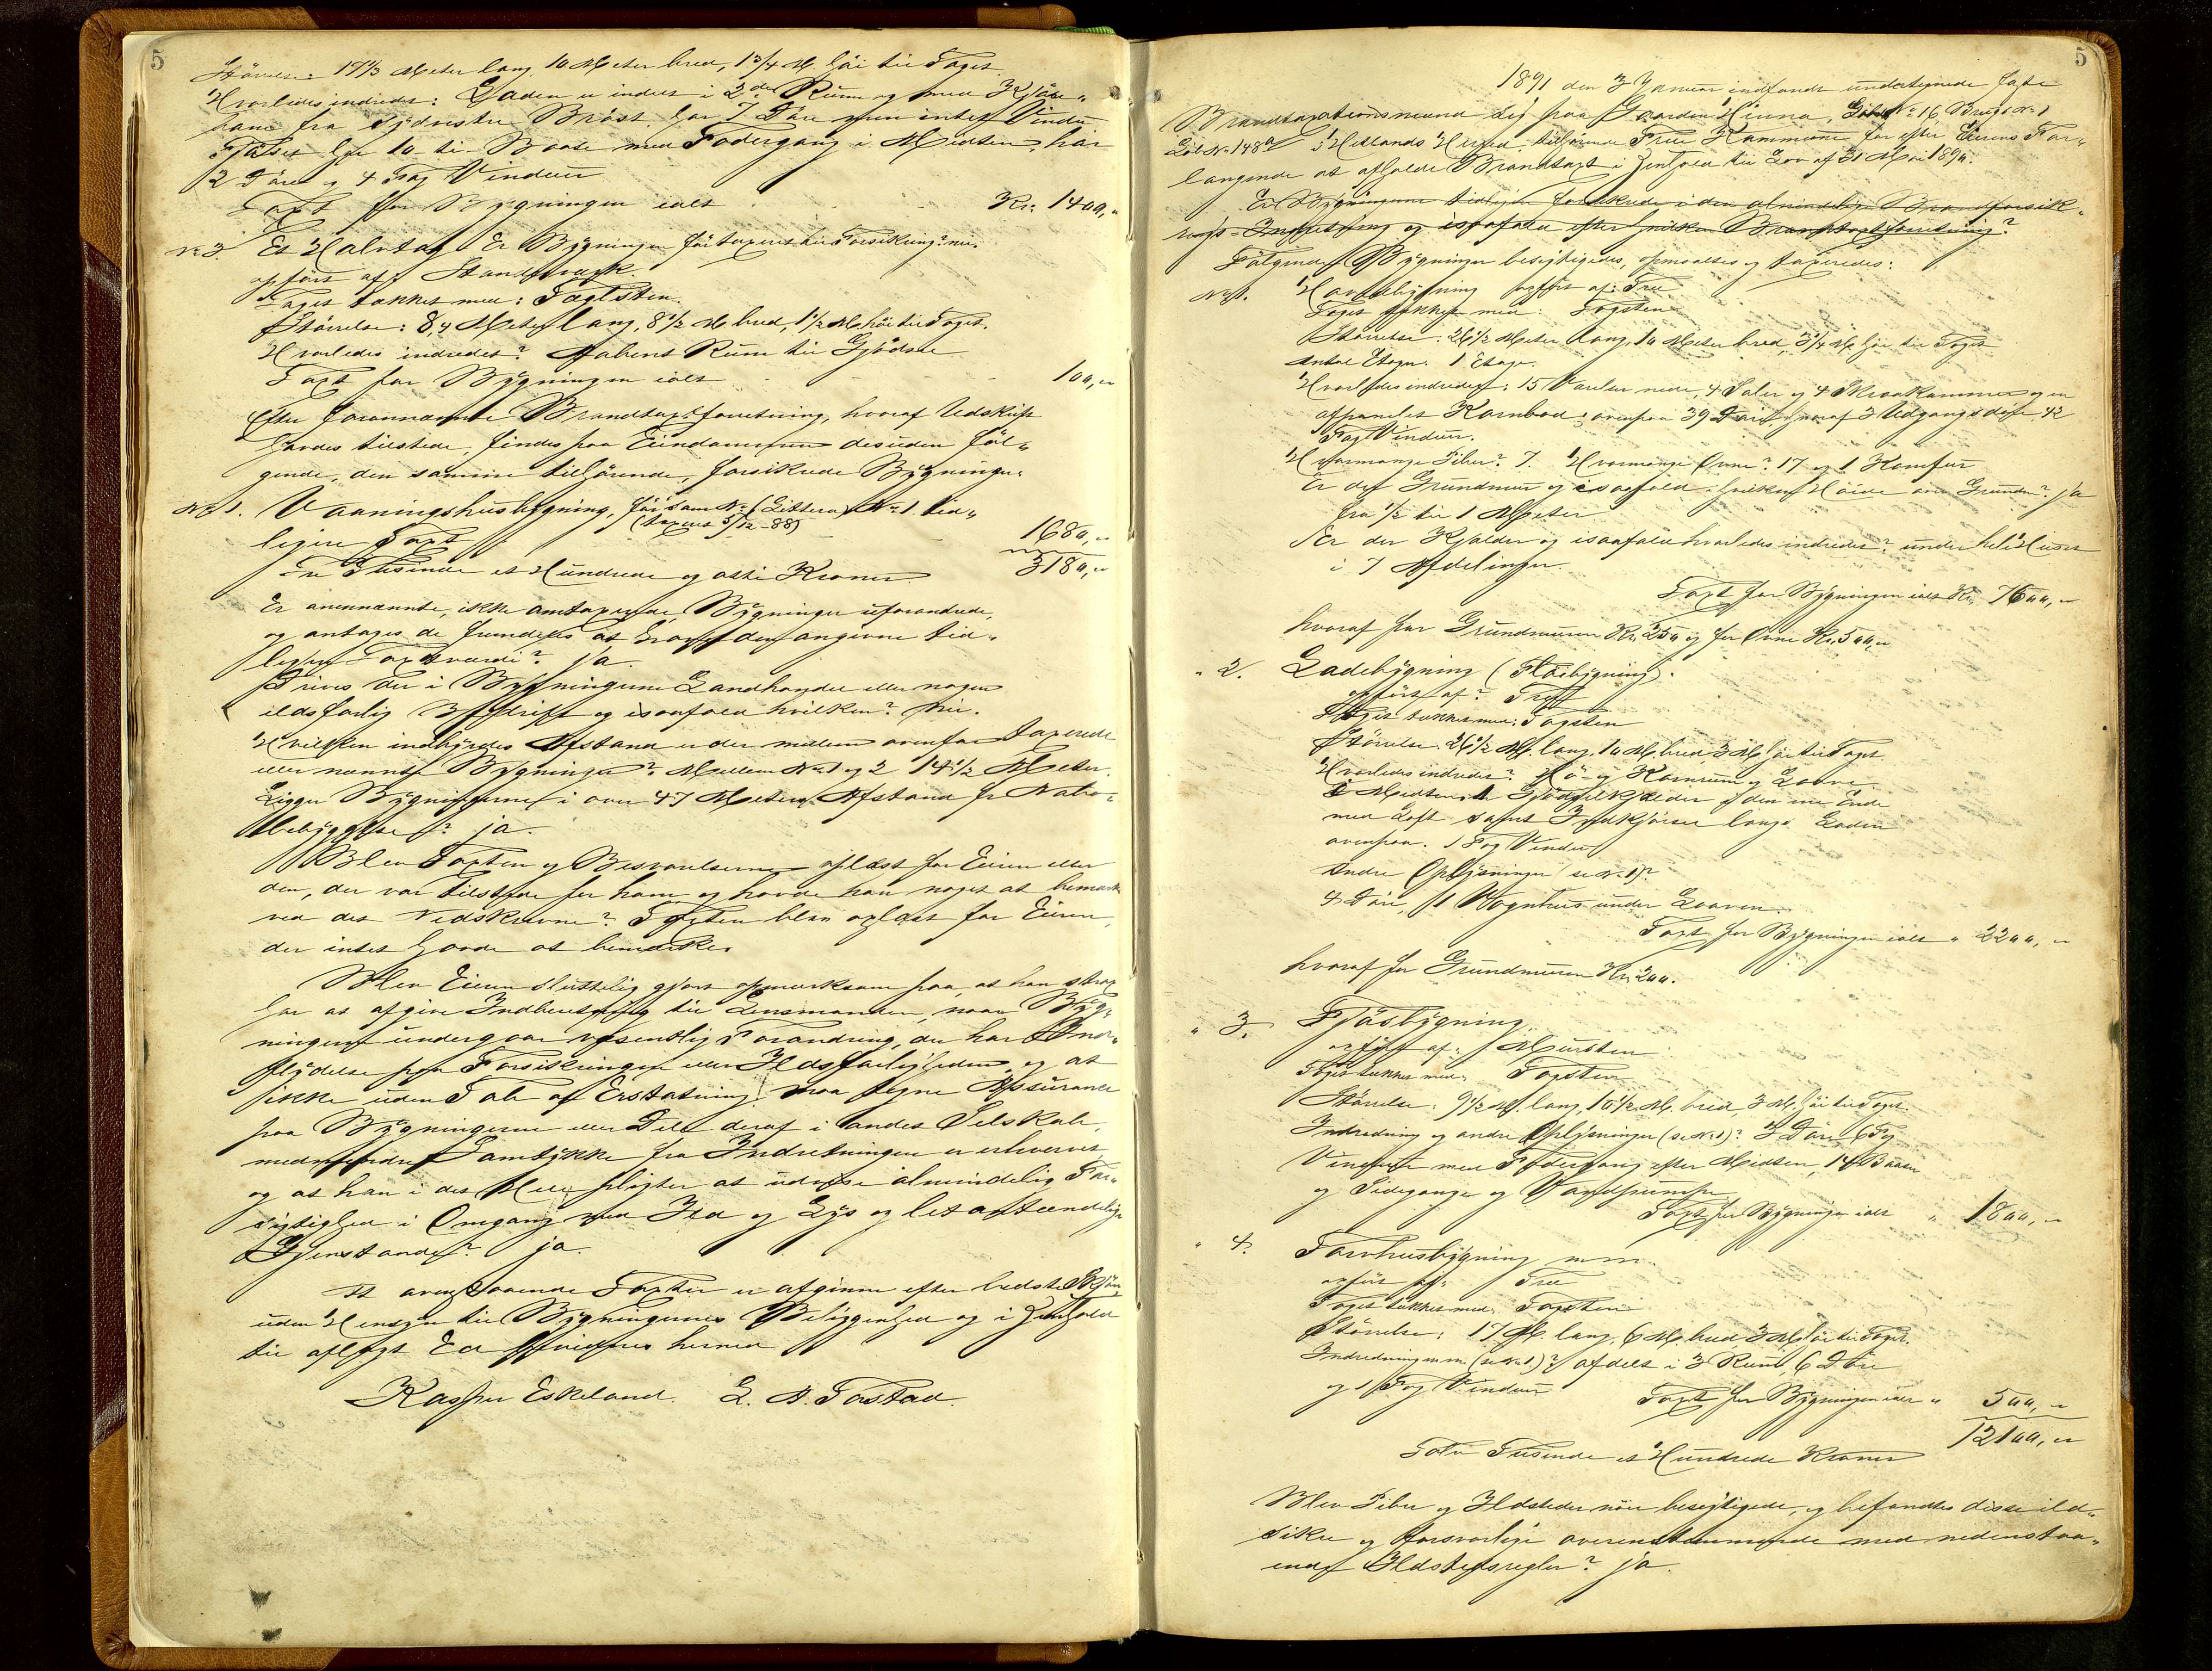 5
Størrelse: 17 1/3 Meter lang, 10 Meter bred, 1 3/4 M. høi til Taget
Hvorledes indredet: Laden er indelt i 2de Rum og med Kjøre-
bane fra sydvestre Brøst har 7 Døre men intet Vindu
Fjøset har 10 ti Baase med Fodergang i Midten, har
2 Døre og 4 Fag Vinduer
Taxt for Bygningen ialt Kr. 1400,"
No 3. Et Halvtag Er Bygningen før taxeret til Forsikring? nei.
opført af: Standsværk.
Taget tækket med: Taglsten.
Størrelse: 8,4 Meter lang, 8 1/2 M bred, 1 1/2 M høi til Taget.
Hvorledes indredet? Aabent Rum til Gjødsel
Taxt for Bygningen ialt 100,"
Efter forannævnte Brandtaxtforretning, hvoraf Udskrift
havdes tilstede, findes paa Eiendommen desuden føl-
gende, den samme tilhørende, forsikrede Bygninger.
No 1. Vaaningshusbygning, før sam No (Littera) No 1. tid-
(taxeret 5/12-88)
ligere Taxt 1680,"
3180,"
Tre Tusinde et Hundrede og otti Kroner
Er ovennævnte, ikke omtaxerede, Bygninger uforandrede,
og antages de fremdeles at have den angivne tid-
ligere Taxtværdi? ja.
Drives der i Bygningerne Landhandel eller nogen
ildsfarlig Bedrift og isaafald hvilken? Nei.
Hvilken indbyrdes Afstand er der mellem ovenfor taxerede
eller nævnte Bygninger? Mellem No 1 og 2 14 1/2 Meter.
Ligger Bygningerne i over 47 Meters Afstand fra Nabo-
bebyggelse? ja.
Blev Taxten og Besvarelserne oplæst for Eieren eller
den, der var tilstede for ham og havde han noget at bemærke
ved det Nedskrevne? Taxten blev oplæst for Eieren,
der intet havde at bemærke.
Blev Eieren sluttelig gjort opmærksom paa, at han strax
har at afgive Indberetning til Lensmanden, naar Byg-
ningerne undergaar væsentlig Forandring, der har Ind-
flydelse paa Forsikringen eller Ildsfarligheden, og at
ikke uden Tab af Erstatning maa tegne Assurance
paa Bygningerne eller Dele deraf i andet Selskab,
medmindre Samtykke fra Indretningen er erhvervet
og at han i det Hele pligter at udvise almindelig For-
sigtighed i Omgang med Ild og Lys og let antændelige
Gjenstande? ja.
At ovenstaaende Taxter er afgivne efter bedste Skjøn
uden Hensyn til Bygningernes Beliggenhed og i Henhold
til aflagt Ed bevidnes herved
Kasper Eskeland. L. A. Tastad.
5
1891 den 3 Januar indfandt undertegnede Lagrettes
Brandtaxationsmænd sig paa Gaarden Hinna, Gaards No 16, Brugs No 1
Løb No 148a i Hetlands Herred, tilhørende Frue Kammerer for efter Eierens For-
langende at afholde Brandtaxt i Henhold til Lov af 31 Mai 1890.
Er Bygningerne tidligere forsikrede i den almindelige Brandforsik-
rings-Indretning og isaafald efter hvilken Brandtaxtforretning?
Følgende Bygninger besigtigedes, opmaaltes og taxeredes:
No 1. Hovedbygning opført af: Træ
Taget tækket med: Tagsten
Størrelse: 26 1/2 Meter lang, 10 Meter bred, 3 1/4 M. høi til Taget
Antal Etager: 1 Etage.
Hvorledes indredet: 15 Værelser nede, 4 Saler og 4 Skraakammer og en
afpanelet Kornbod ovenpaa 39 Døre, hvoraf 3 Udgangsdøre 42
Fag Vinduer.
Hvormange Piber? 7. Hvormange Ovne? 17 og 1 Komfur
Er der Grundmur og isaafald: hvilken Høide over Grunden? ja
fra 1/2 til 1 Meter
Er der Kjelder og isaafald hvorledes indredet? under hele Huset
i 7 Afdelinger.
Taxt for Bygningen ialt Kr. 7600,"
hvoraf for Grundmuren Kr. 250 og for Ovne Kr. 500,"
" 2. Ladebygning (Fløibygning).
opført af? Træ
Taget tækket med: Tagsten
Størrelse: 26 1/2 M. lang, 10 M. bred, 3 M. høi til Taget
Hvorledes indredet? Hø- og Kornrum og Loove
i Midten, 1 Gjødselkjælder i den ene Ende
med Loft samt Indkjørsel langs Laden
ovenpaa. 1 Fag Vindu
Andre Oplysninger (se No 1)?
4 Døre, 1 Vognhus under Looven.
Taxt for Bygningen ialt " 2200,"
hvoraf for Grundmuren Kr. 200.
" 3. Fjøsbygning.
opført af: Mursten
Taget tækket med: Tagsten
Størrelse: 9 1/2 M. lang, 10 1/2 M. bred, 3 M. høi til Taget.
Indredning og andre Oplysninger (se No 1)? 3 Døre 6 Fag
Vinduer med Fodergang efter Midten, 14 Baase
og Sidegange og Vandpumpe
Taxt for Bygningen ialt " 1800,"
" 4. Tørvhusbygning m.m.
opført af: Træ
Taget tækket med: Tagsten
Størrelse: 17 M. lang, 6 M. bred, 3 M. høi til Taget.
Indredning m.m. (se No 1.)? afdelt i 3 Rum, 6 Døre
og 1 Fag Vinduer Taxt for Bygningen ialt " 500,"
12100,"
Tolv Tusinde et Hundrede Kroner
Blev Piber og Ildsteder nøie besigtigede, og befandtes disse ild-
sikre og forsvarlige overensstemmende med nedenstaa-
ende Ildstedsregler? ja.